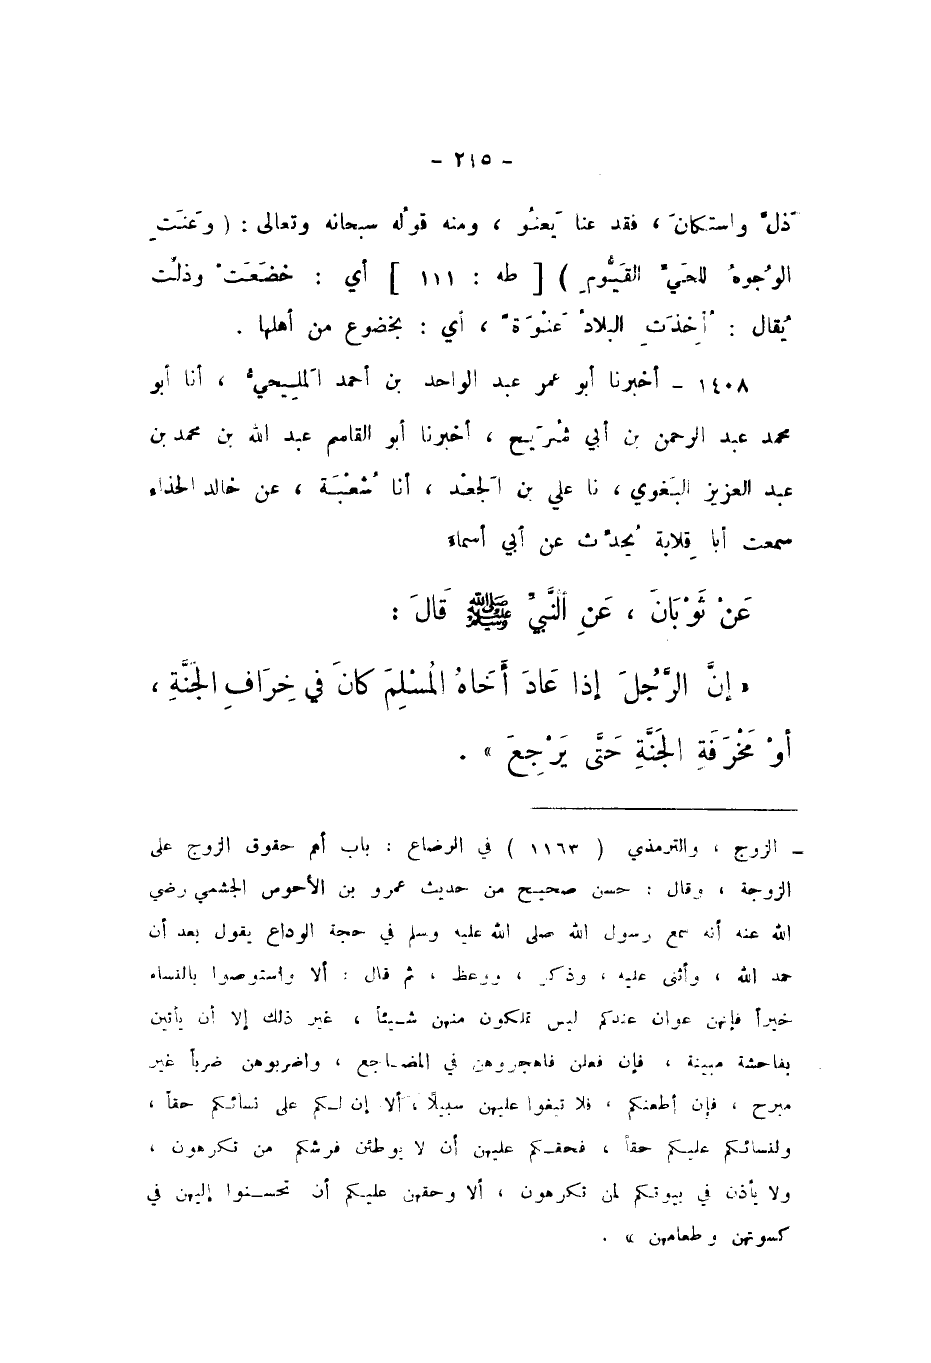 - ٢١٥ -
ذَلَّ واستكانَ ، فقد عنا يَعنُو ، ومنه قولُه سبحانه وتعالى : ( وعَنَتِ
الوُجوهُ للحَيِّ القَيُّومِ ) [ طه : ١١١ ] أي : خضَعَتْ وذلَّت
يُقال : أُخِذَتِ البلادُ عَنْوَةً ، أي : بخضوع من أهلها .
١٤٠٨ - أخبرنا أبو عمر عبد الواحد بن أحمد المَليحيُّ ، أنا أبو
محمد عبد الرحمن بن أبي شُرَيح ، أخبرنا أبو القاسم عبد الله بن محمد بن
عبد العزيز البَغوي ، نا علي بن الجَعْد ، أنا شُعْبَة ، عن خالد الحذاء
سمعت أبا قِلابة يُحدِّث عن أبي أسماء
عَنْ ثَوْبَانَ ، عَنِ النَّبيِّ ﷺ قَالَ :
« إنَّ الرَّجُلَ إذا عَادَ أَخَاهُ المُسْلِمَ كانَ في خِرَافِ الجَنَّةِ ،
أوْ مَخْرَفَةِ الجَنَّةِ حَتَّى يَرْجِعَ » .
ـ الزوج ، والترمذي ( ١١٦٣ ) في الرضاع : باب أم حقوق الزوج على
الزوجة ، وقال : حسن صحيح من حديث عمرو بن الأحوص الجشمي رضي
الله عنه أنه سمع رسول الله صلى الله عليه وسلم في حجة الوداع يقول بعد أن
حمد الله ، وأثنى عليه ، وذكر ، ووعظ ، ثم قال : ألا واستوصوا بالنساء
خيراً فإنهن عوان عندكم ليس تملكون منهن شيئاً ، غير ذلك إلا أن يأتين
بفاحشة مبينة ، فإن فعلن فاهجروهن في المضاجع ، واضربوهن ضرباً غير
مبرح ، فإن أطعنكم ، فلا تبغوا عليهن سبيلًا ، ألا إن لكم على نسائكم حقاً ،
ولنسائكم عليكم حقاً ، فحقكم عليهن أن لا يوطئن فرشكم من تكرهون ،
ولا يأذن في بيوتكم لمن تكرهون ، ألا وحقهن عليكم أن تحسنوا إليهن في
كسوتهن وطعامهن » .